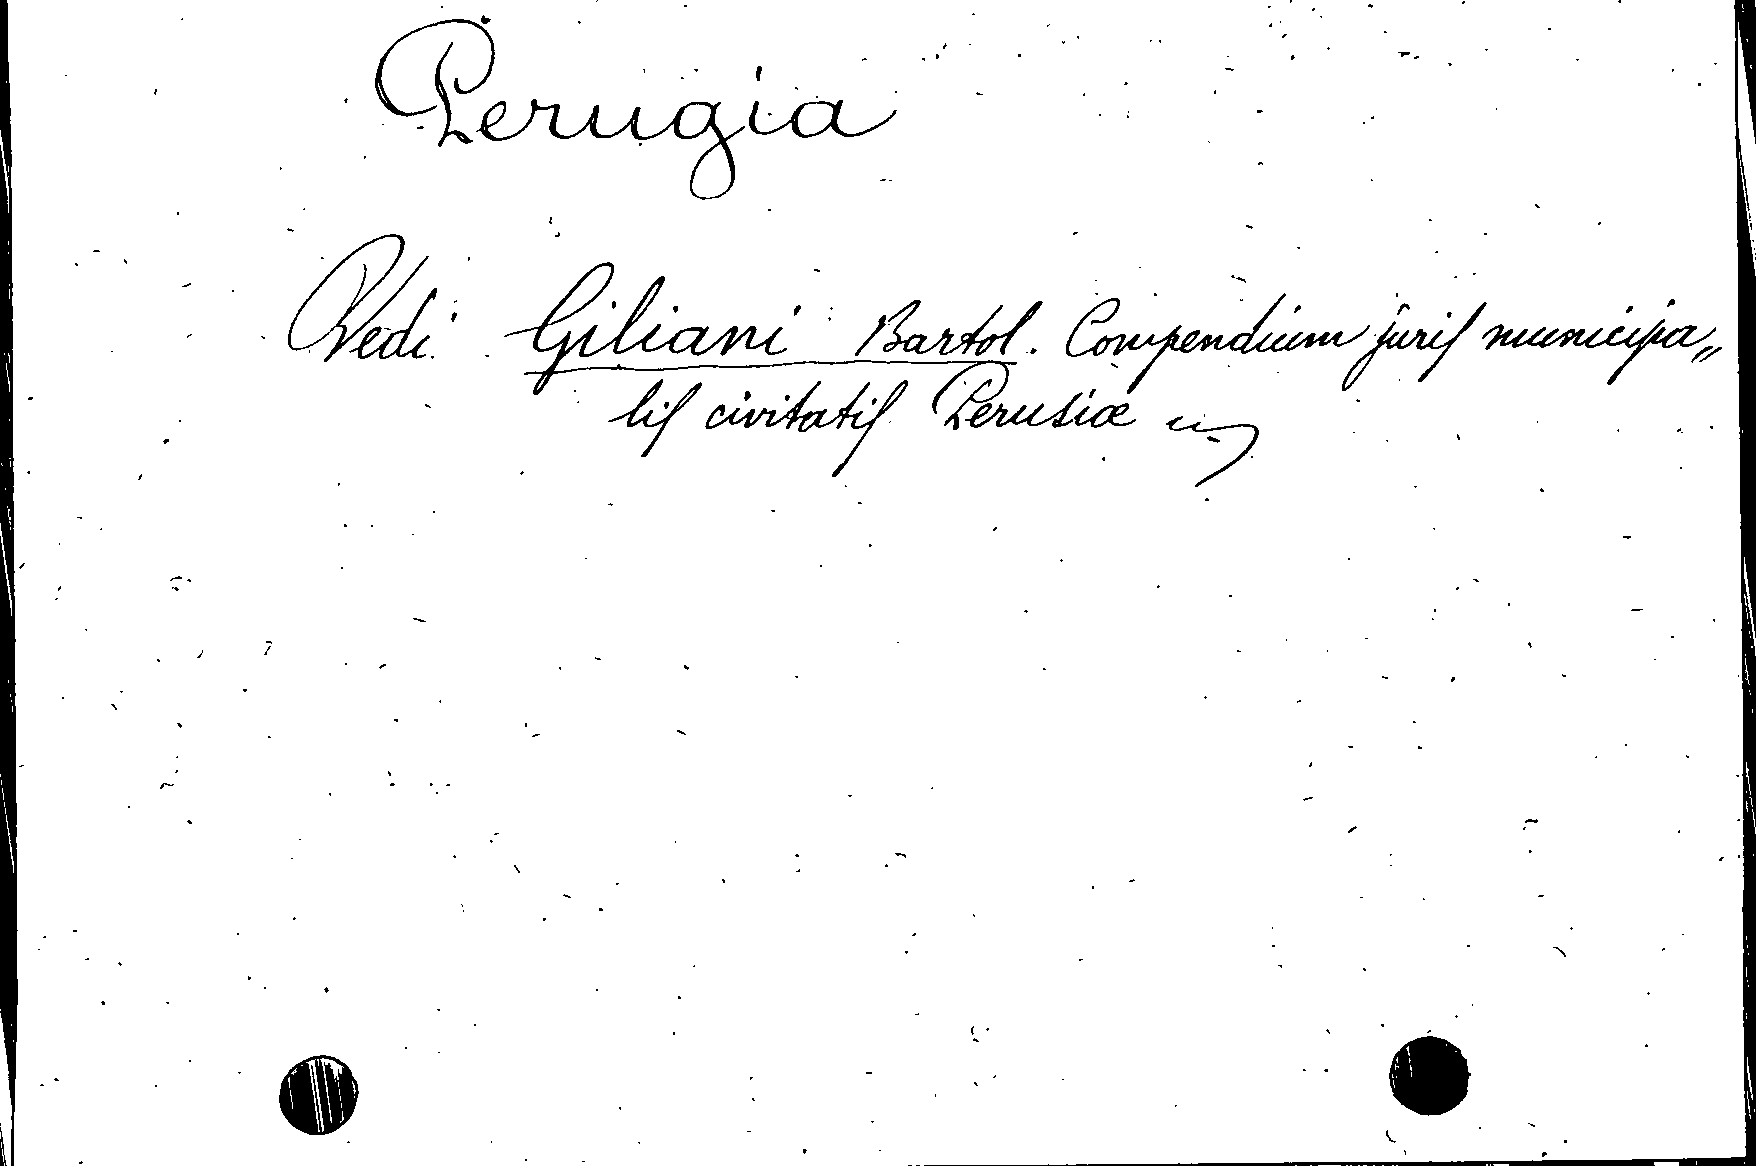 Perugia
Vedi Giliani Bartol. Compendium juris municipa„
lis civitatis Perusiæ